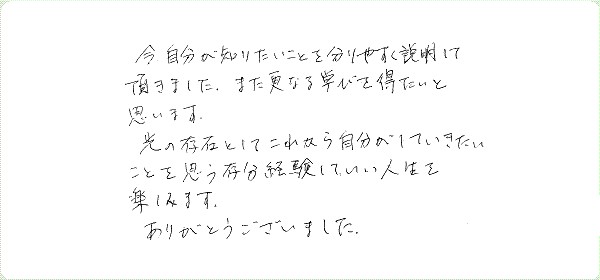 今自分が知りたいことを分りやすく説明して
頂きました。また更なる学びを得たいと
思います。
光の存在としてこれから自分がしていきたい
ことを思う存分経験していい人生を
楽しみます。
ありがとうございました。